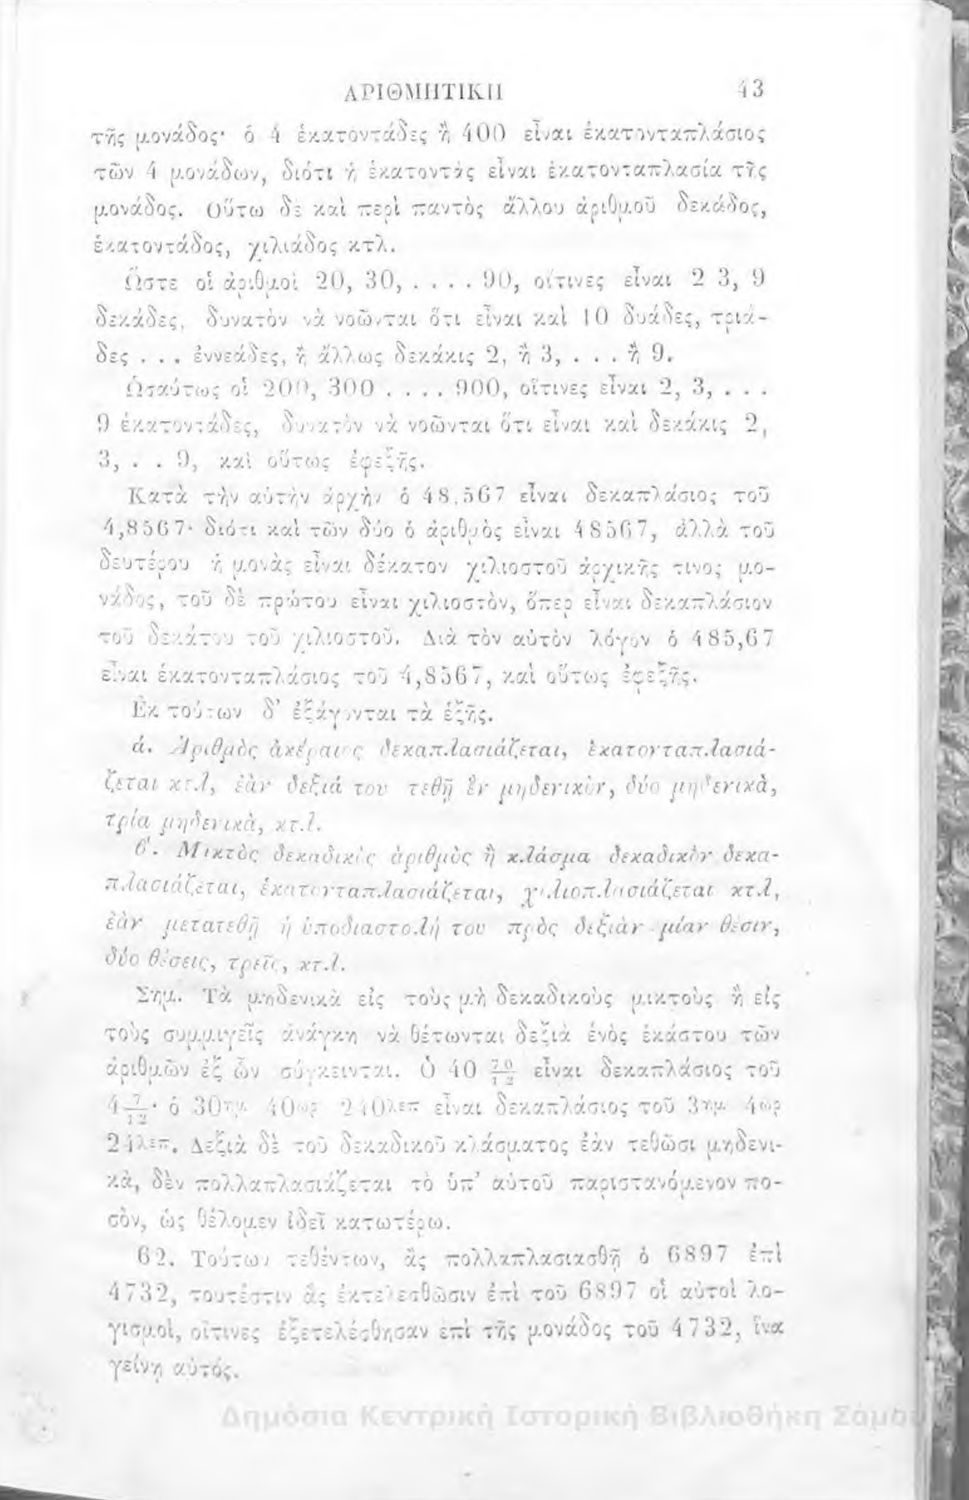 ΑΡΙΘΜΗΤΙΚΗ 43
τῆς μονάδος· ὁ 4 ἑκατοντάδες ἢ 400 εἶναι ἑκατονταπλάσιος
τῶν 4 μονάδων, διότι ἡ ἑκατοντὰς εἶναι ἑκατονταπλασία τῆς
μονάδος. Οὕτω δὲ καὶ περὶ παντὸς ἄλλου ἀριθμοῦ δεκάδος,
ἑκατοντάδος, χιλιάδος κτλ.
Ὥστε οἱ ἀριθμοὶ 20, 30, . . . . 90, οἵτινες εἶναι 2 3, 9
δεκάδες, δυνατὸν νὰ νοῶνται ὅτι εἶναι καὶ 10 δυάδες, τριά-
δες . . . ἐννεάδες, ἢ ἄλλως δεκάκις 2, ἢ 3, . . . ἢ 9.
Ὡσαύτως οἱ 200, 300 . . . . 900, οἵτινες εἶναι 2, 3, . . .
9 ἑκατοντάδες, δυνατὸν νὰ νοῶνται ὅτι εἶναι καὶ δεκάκις 2,
3, . . 9, καὶ οὕτως ἐφεξῆς.
Κατὰ τὴν αὐτὴν ἀρχὴν ὁ 48,567 εἶναι δεκαπλάσιος τοῦ
4,8567· διότι καὶ τῶν δύο ὁ ἀριθμὸς εἶναι 48567, ἀλλὰ τοῦ
δευτέρου ἡ μονὰς εἶναι δέκατον χιλιοστοῦ ἀρχικῆς τινος μο-
νάδος, τοῦ δὲ πρώτου εἶναι χιλιοστὸν, ὅπερ εἶναι δεκαπλάσιον
τοῦ δεκάτου τοῦ χιλιοστοῦ. Διὰ τὸν αὐτὸν λόγον ὁ 485,67
εἶναι ἑκατονταπλάσιος τοῦ 4,8567, καὶ οὕτως ἐφεξῆς.
Ἐκ τούτων δ' ἐξάγονται τὰ ἑξῆς.
ά. Ἀριθμὸς ἀκέραιος δεκαπλασιάζεται, ἑκατονταπλασιά-
ζεται κτλ, ἐὰν δεξιά του τεθῇ ἓν μηδενικὸν, δύο μηδενικὰ,
τρία μηδενικὰ, κτλ.
ϐ'. Μικτὸς δεκαδικὸς ἀριθμὸς ἢ κλάσμα δεκαδικὸν δεκα-
πλασιάζεται, ἑκατονταπλασιάζεται, χιλιοπλασιάζεται κτλ,
ἐὰν μετατεθῇ ἡ ὑποδιαστολή του πρὸς δεξιὰν μίαν θέσιν,
δύο θέσεις, τρεῖς, κτλ.
Σημ. Τὰ μηδενικὰ εἰς τοὺς μὴ δεκαδικοὺς μικτοὺς ἢ εἰς
τοὺς συμμιγεῖς ἀνάγκη νὰ θέτωνται δεξιὰ ἑνὸς ἑκάστου τῶν
ἀριθμῶν ἐξ ὧν σύγκεινται. Ὁ 40 70/12 εἶναι δεκαπλάσιος τοῦ
4 7/12· ὁ 30ημ. 40ωρ 240λεπ εἶναι δεκαπλάσιος τοῦ 3ημ. 4ωρ
24λεπ. Δεξιὰ δὲ τοῦ δεκαδικοῦ κλάσματος ἐὰν τεθῶσι μηδενι-
κὰ, δὲν πολλαπλασιάζεται τὸ ὑπ' αὐτοῦ παριστανόμενον πο-
σὸν, ὡς θέλομεν ἰδεῖ κατωτέρω.
62. Τούτων τεθέντων, ἂς πολλαπλασιασθῇ ὁ 6897 ἐπὶ
4732, τουτέστιν ἂς ἐκτελεσθῶσιν ἐπὶ τοῦ 6897 οἱ αὐτοὶ λο-
γισμοὶ, οἵτινες ἐξετελέσθησαν ἐπὶ τῆς μονάδος τοῦ 4732, ἵνα
γείνῃ αὐτός.
Δημόσια Κεντρική Ιστορική Βιβλιοθήκη Σάμου